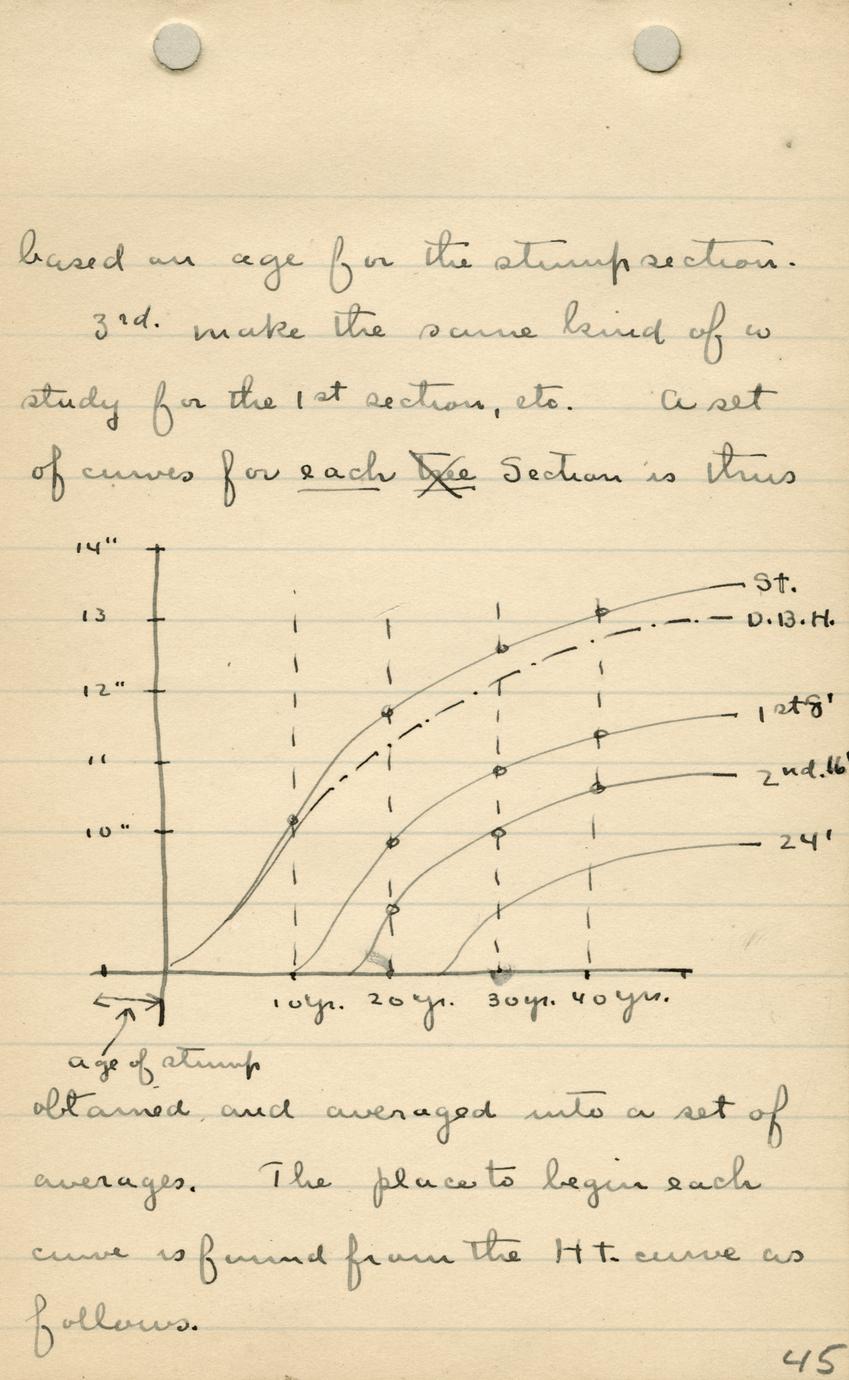 based on age for the stump section.
3rd. make the same kind of a
study for the 1st section, etc. A set
of curves for each tree Section is thus
14"
St.
13
D.B.H.
12"
1st 8'
11
2nd. 16'
10"
24'
10yr. 20yr. 30yr. 40yrs.
age of stump
obtained and averaged into a set of
averages. The place to begin each
curve is found from the Ht. curve as
follows.
45